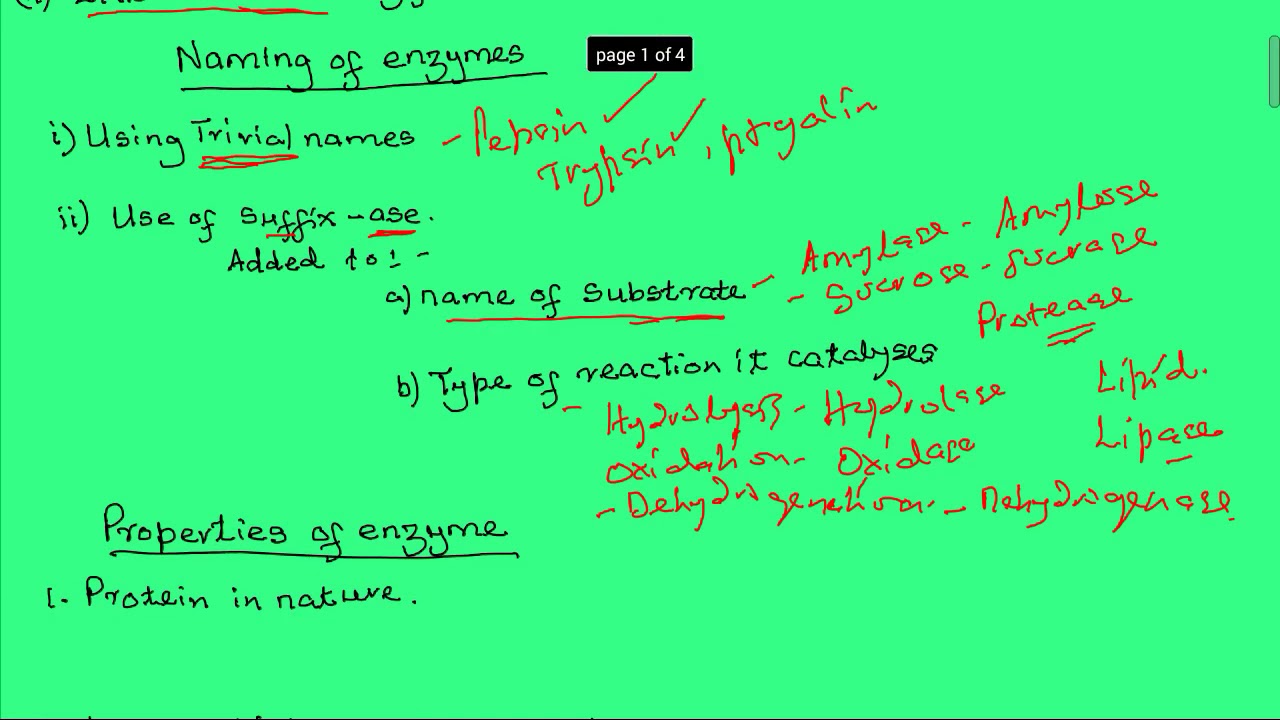 Naming of enzymes
page 1 of 4
i) Using Trivial names - Pepsin
Trypsin, ptyalin
ii) Use of suffix -ase.
Added to:-
a) name of substrate - Amylase - Amylosse
- Sucrose - Sucrase
Protease
b) Type of reaction it catalyses
Lipid.
- Hydrolysis - Hydrolase
Lipase
Oxidation - Oxidase
- Dehydrogenation - Dehydrogenase.
Properties of enzyme
1. Protein in nature.